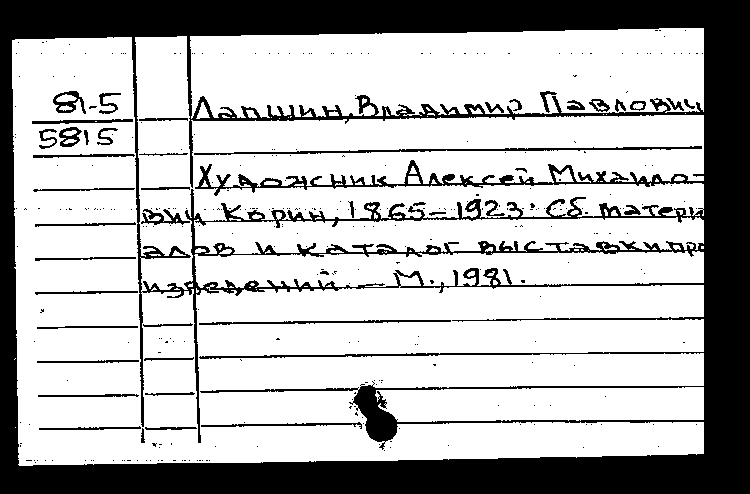 81-5
5815
Лапшин, Владимир Павлович
Художник Алексей Михайло-
вич Корин, 1865-1923: Сб. матери
алов и каталог выставки про
изведений. - М., 1981.